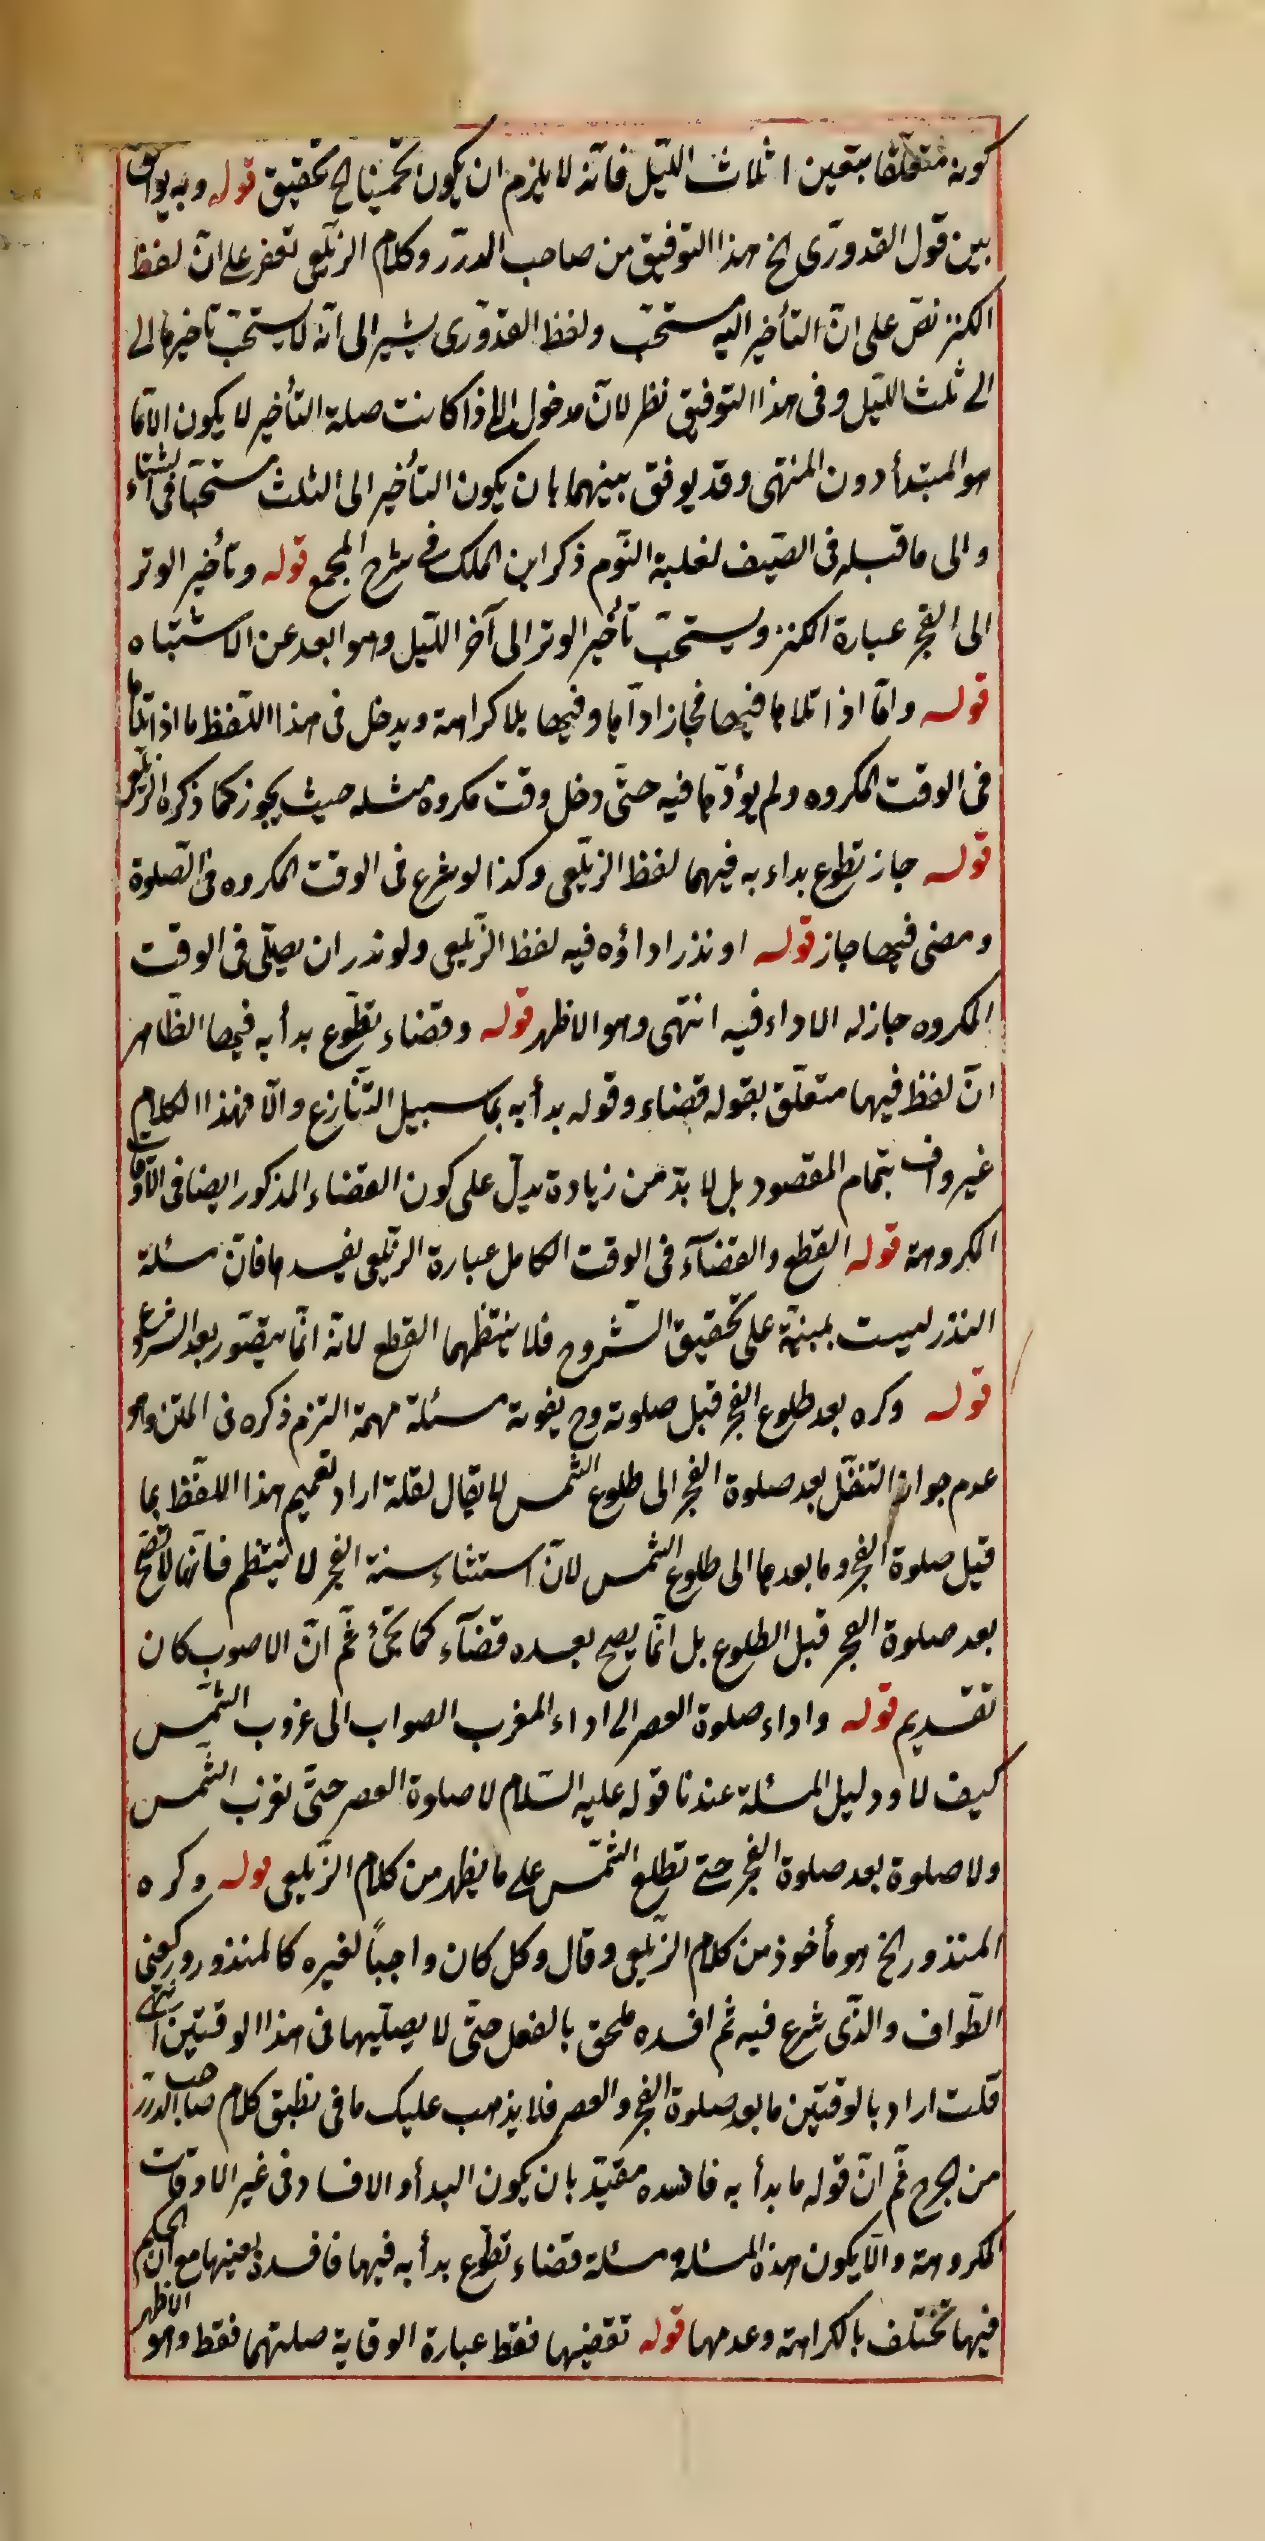 كونه متعلقا بتعين اثلاث الليل فانه لا يلزم ان يكون تخمينا لح تحقيق قوله وبه يوافق
بين قول القدورى الخ هذا التوفيق من صاحب الدرر وكلام الزيلعى على انّ لفظ
الكنز نصّ على انّ التأخير اليه مستحبّ ولفظ القدورى يشير الى انّه لا يستحبّ تاخيرها الى
الى ثلث الليل وفى هذا التوفيق نظر لانّ مدخول الى اذا كانت صلة التأخير لا يكون الّا
هو المبتدأ دون المنتهى وقد يوفق بينهما بان يكون التأخير الى الثلث مستحبّا فى الشتاء
والى ما قبله فى الصّيف لغلبة النّوم ذكر ابن الملك فى شرح المجمع قوله وتأخير الوتر
الى الفجر عبارة الكنز ويستحبّ تأخير الوتر الى آخر اللّيل وهو ابعد عن الاشتباه
قوله وامّا اذا تلاها فيها فجاز اداؤها وفيها بلا كراهة ويدخل فى هذا اللّفظ ما اذا تلاها
فى الوقت المكروه ولم يؤدّها فيه حتّى دخل وقت مكروه مثله حيث يجوز كما ذكره الزّيلعى
قوله جاز تطوع بداء به فيهما لفظ الزّيلعى وكذا لو شرع فى الوقت المكروه فى الصّلوة
ومضى فيها جاز قوله او نذر اداؤه فيه لفظ الزّيلعى ولو نذر ان يصلّى فى الوقت
المكروه جاز له الاداء فيه انتهى وهو الاظهر قوله وقضاء تطوّع بدأ به فيها الظّاهر
انّ لفظ فيها متعلّق بقوله قضاء وقوله بدأ به بما سبيل التّنازع والّا فهذا الكلام
غير واف بتمام المقصود بل لا بدّ من زيادة يدلّ على كون القضاء المذكور ايضا فى الاوقات
المكروهة قوله القطع والقضآء فى الوقت الكامل عبارة الزيلعى يفيدها فانّ مسئلة
النذر ليست بمبنيّة على تحقيق الشّروح فلا ينتظمها القطع لانّه انّما يتصّور بعد الشروع
قوله وكره بعد طلوع الفجر قبل صلوته وح يفوته مسئلة مهمة التزم ذكره فى المتن وهو
عدم جواز التنفّل بعد صلوة الفجر الى طلوع الشّمس لا يقال لقلة اراد تعميم هذا اللّفظ بما
قبل صلوة الفجر وما بعدها الى طلوع الشّمس لانّ استثناء سنة الفجر لا ينتظم فانّها لا تصحّ
بعد صلوة الفجر قبل الطلوع بل انّما يصح بعده قضآء كما يجئ ثمّ انّ الاصوب كان
تقديم قوله واداء صلوة العصر الى اداء المغرب الصواب الى غروب الشّمس
كيف لا ودليل المسئلة عندنا قوله عليه السّلام لا صلوة العصر حتّى تغرب الشّمس
ولا صلوة بعد صلوة الفجر حتى تطلع الشّمس على ما يظهر من كلام الزّيلعى قوله وكره
المنذور الخ هو مأخوذ من كلام الزّيلعى وقال وكل كان واجباً لغيره كالمنذور وركعتى
الطّواف والذّى شرع فيه ثم افسده ملحق بالفعل حتّى لا يصلّيها فى هذا الوقتين انتهى
قلت اراد بالوقتين ما بعد صلوة الفجر والعصر فلا يذهب عليك ما فى تطبق كلام صاحب الدرر
من الجرح ثمّ انّ قوله ما بدأ به فافسده مقيّد بان يكون البدأ والافساد فى غير الاوقات
المكروهة والّا يكون هذه المسئلة مسئلة قضاء تطوّع بدأ به فيها فافسده بعينها مع انّ الحكم
فيها تختلف بالكراهة وعدمها قوله تقضيها فقط عبارة الوقاية صلتهما فقط وهو الاظهر